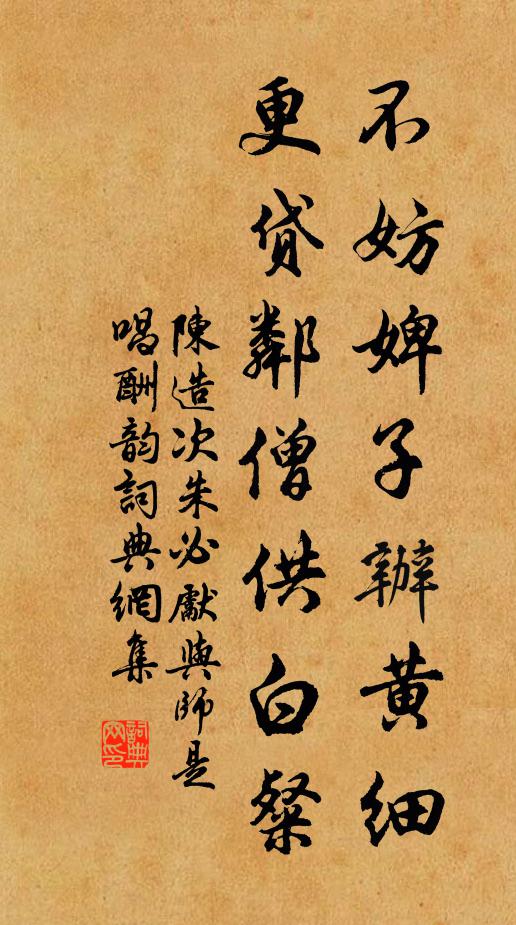 不妨婢子辦黄細
更貸鄰僧供白粲
陳造次朱必獻與師是
唱酬韵詞典網集
詞典網印